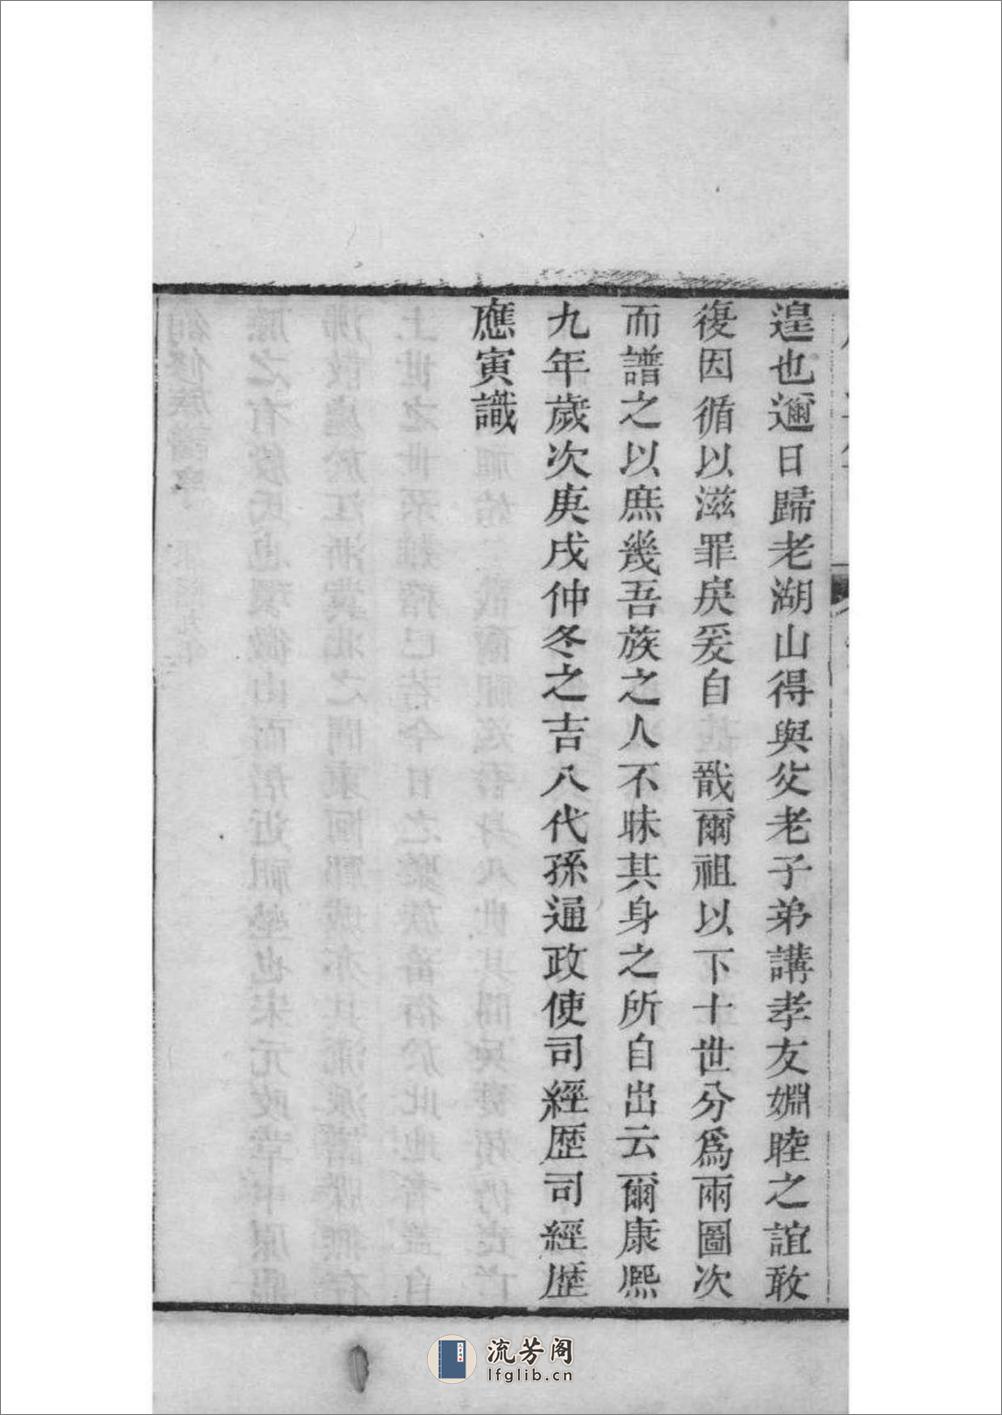 遑也邇日歸老湖山得與父老子弟講孝友婣睦之誼敢
復因循以滋罪戾爰自 戩爾祖以下十世分爲兩圖次
而譜之以庶幾吾族之人不昧其身之所自出云爾康熙
九年歲次庚戌仲冬之吉八代孫通政使司經歷司經歷
應寅識
流芳阁
lfglib.cn